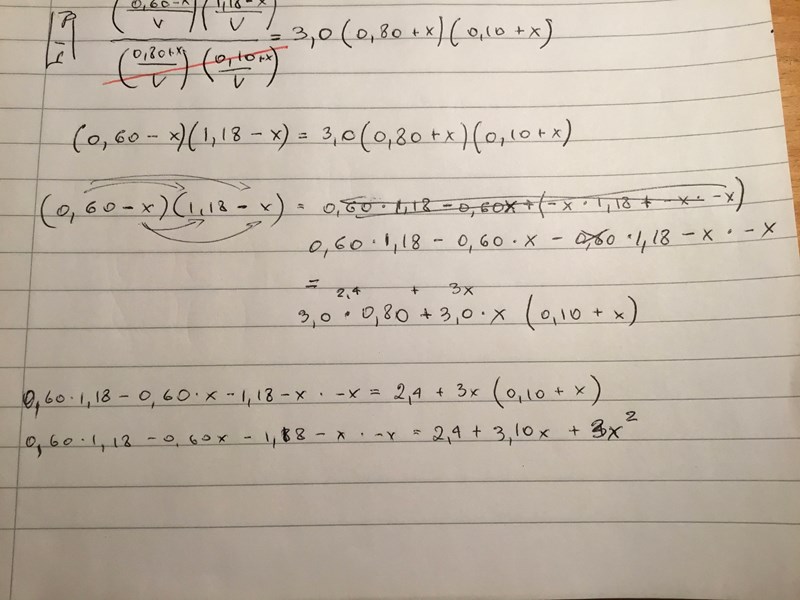 (0,60-x / V)(1,18-x / V)
(0,80+x / V)(0,10+x / V) = 3,0(0,80+x)(0,10+x)
(0,60-x)(1,18-x) = 3,0(0,80+x)(0,10+x)
(0,60-x)(1,18-x) = 0,60·1,18-0,60x+(-x·1,18+-x·-x)
0,60·1,18-0,60·x-0,60·1,18-x·-x
=
2,4 + 3x
3,0·0,80+3,0·x (0,10+x)
0,60·1,18-0,60·x-1,18-x·-x = 2,4+3x (0,10+x)
0,60·1,18-0,60x-1,18-x·-x = 2,4+3,10x+3x²